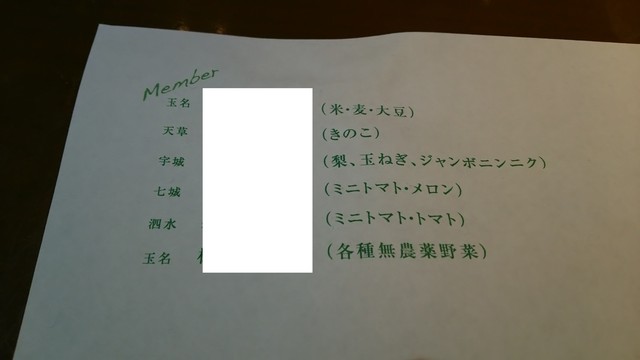 Member
玉名 (米・麦・大豆)
天草 (きのこ)
宇城 (梨、玉ねぎ、ジャンボニンニク)
七城 (ミニトマト・メロン)
泗水 (ミニトマト・トマト)
玉名 (各種無農薬野菜)